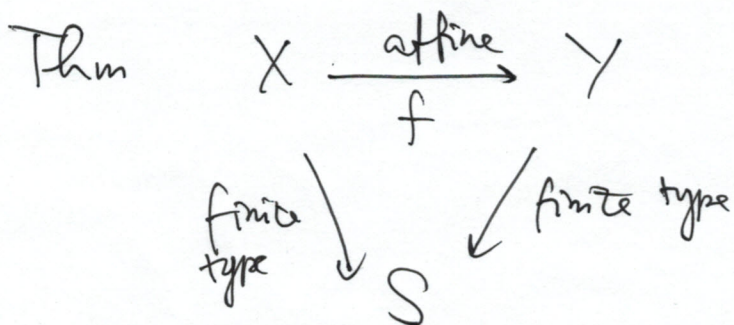 Thm X affine Y
f
finite type finite type
S